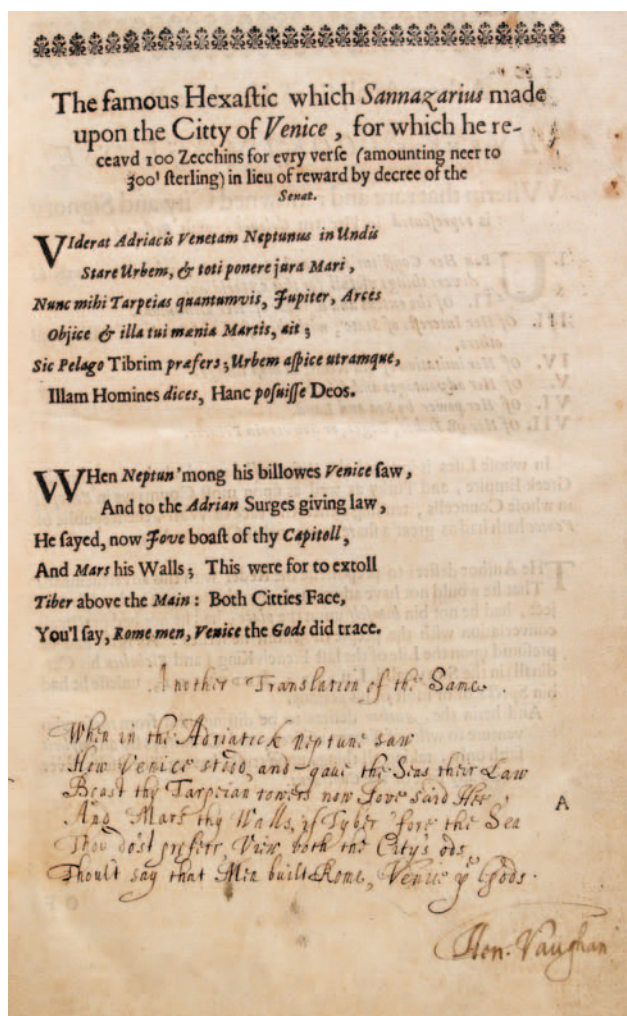 The famous Hexastic which Sannazarius made
upon the Citty of Venice, for which he re-
ceavd 100 Zecchins for evry verse (amounting neer to
300l sterling) in lieu of reward by decree of the
Senat.
VIderat Adriacis Venetam Neptunus in Undis
Stare Urbem, & toti ponere jura Mari,
Nunc mihi Tarpeias quantumvis, Jupiter, Arces
Objice & illa tui mænia Martis, ait;
Sic Pelago Tibrim præfers; Urbem aspice utramque,
Illam Homines dices, Hanc posuisse Deos.
WHen Neptun 'mong his billowes Venice saw,
And to the Adrian Surges giving law,
He sayed, now Jove boast of thy Capitoll,
And Mars his Walls; This were for to extoll
Tiber above the Main: Both Citties Face,
You'l say, Rome men, Venice the Gods did trace.
Another Translation of the Same.
When in the Adriatick Neptune saw
How Venice stood, and gave the Seas their Law
Boast thy Tarpeian towers now Jove said Hee,
And Mars thy Walls, if Tyber 'fore the Sea
Thou dost preferr, View both the City's ods
Thoult say that Men built Rome, Venice ye Gods.
A
Hen. Vaughan